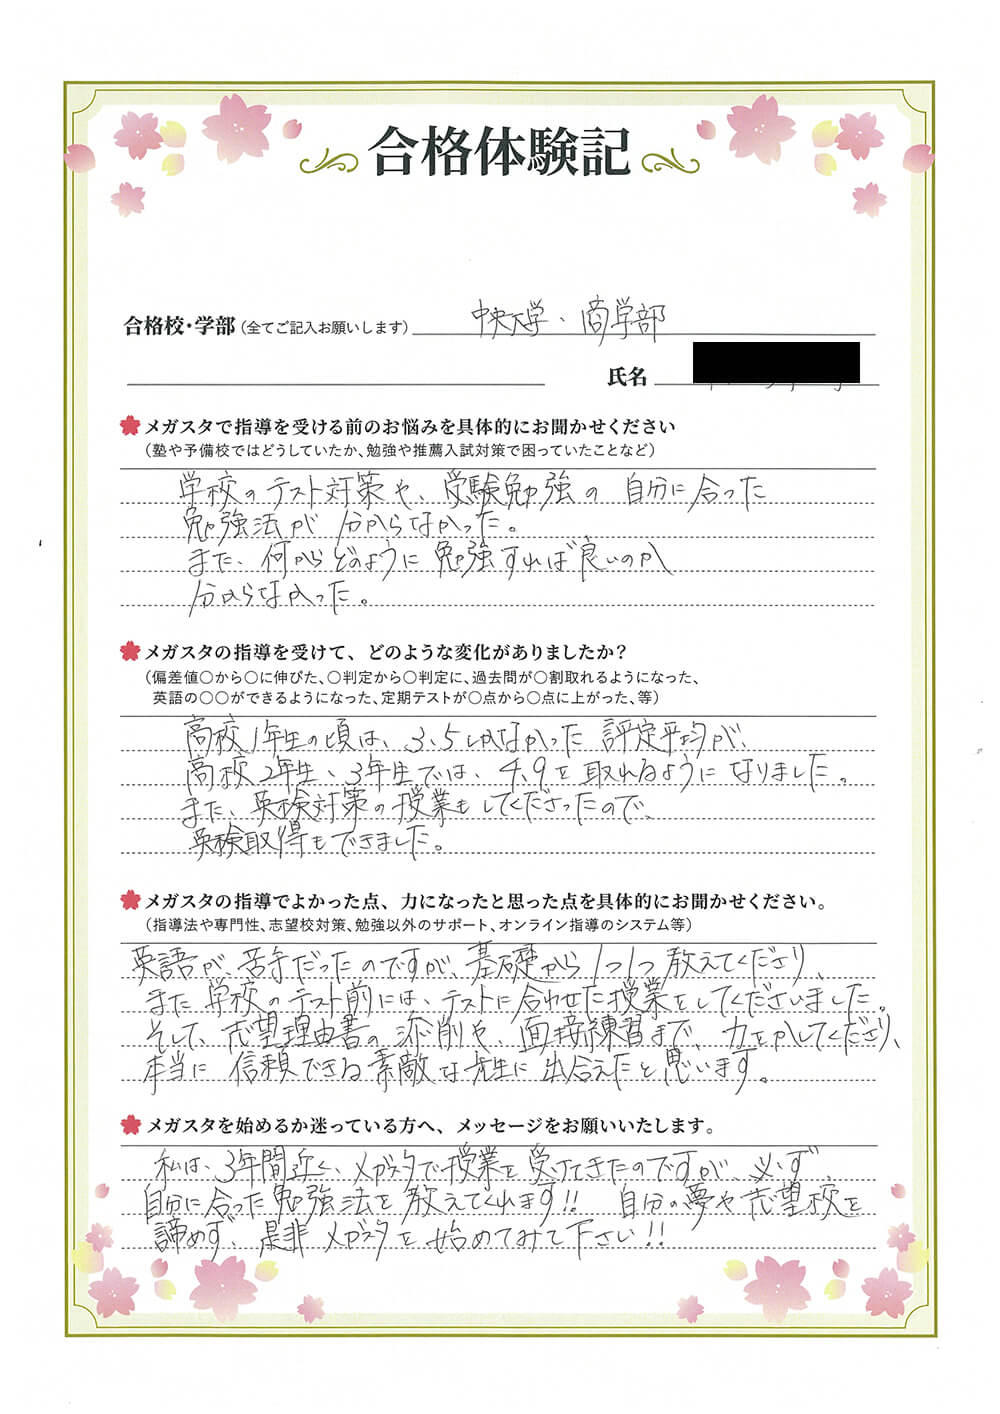 合格体験記
合格校・学部（全てご記入お願いします） 中央大学、商学部
氏名
メガスタで指導を受ける前のお悩みを具体的にお聞かせください
（塾や予備校ではどうしていたか、勉強や推薦入試対策で困っていたことなど）
学校のテスト対策や、受験勉強の自分に合った
勉強法が分からなかった。
また、何からどのように勉強すれば良いのか
分からなかった。
メガスタの指導を受けて、どのような変化がありましたか？
（偏差値○から○に伸びた、○判定から○判定に、過去問が○割取れるようになった、
英語の○○ができるようになった、定期テストが○点から○点に上がった、等）
高校1年生の頃は、3、5しかなかった評定平均が、
高校2年生、3年生では、4、9を取れるようになりました。
また、英検対策の授業もしてくださったので、
英検取得もできました。
メガスタの指導でよかった点、力になったと思った点を具体的にお聞かせください。
（指導法や専門性、志望校対策、勉強以外のサポート、オンライン指導のシステム等）
英語が、苦手だったのですが、基礎から1つ1つ教えてくださり、
また学校のテスト前には、テストに合わせた授業をしてくださいました。
そして、志望理由書の添削や、面接練習まで、力をかしてくださり、
本当に信頼できる素敵な先生に出会えたと思います。
メガスタを始めるか迷っている方へ、メッセージをお願いいたします。
私は、3年間近く、メガスタで授業を受けてきたのですが、必ず
自分に合った勉強法を教えてくれます!! 自分の夢や志望校を
諦めず、是非メガスタを始めてみて下さい!!